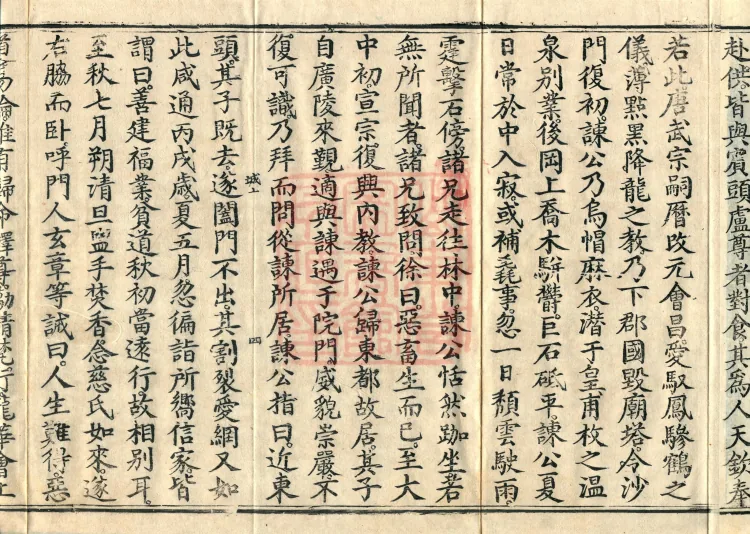 赴供皆與賓頭盧尊者對食其爲人天欽奉
若此唐武宗嗣曆改元會昌愛馭鳳驂鶴之
儀薄點黑降龍之教乃下郡國毀廟塔令沙
門復初諫公乃烏帽麻衣潛于皇甫枚之温
泉別業後岡上喬木駢欝巨石砥平諫公夏
日常於中入寂或補毳事忽一日頹雲駛雨
霆擊石傍諸兄走往林中諫公恬然跏坐若
無所聞者諸兄致問徐曰惡畜生而已至大
中初宣宗復興內教諫公歸東都故居其子
自廣陵來覲適與諫遇于院門威貌崇嚴不
復可識乃拜而問從諫所居諫公指曰近東
城
四
頭其子既去遂闔門不出其割裂愛網又如
此咸通丙戌歲夏五月忽徧詣所嚮信家皆
謂曰善建福業貧道秋初當遠行故相別耳
至秋七月朔清旦盥手焚香念慈氏如來遂
右脇而卧呼門人玄章等誡曰人生難得惡